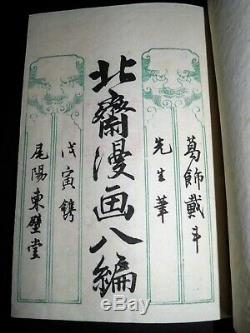 葛飾戴斗
先生筆
北齋漫画八編
戊寅鐫
尾陽東壁堂
ebay